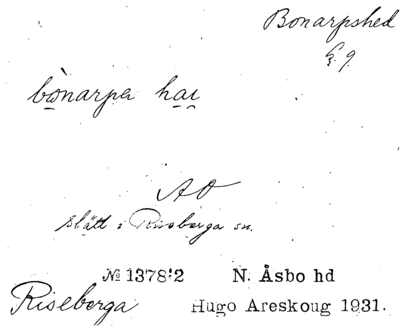 Bonarpshed
Eg.
bònarpa hai
AO
slätt i Riseberga sn.
№ 1378:2 N. Åsbo hd
Riseberga Hugo Areskoug 1931.